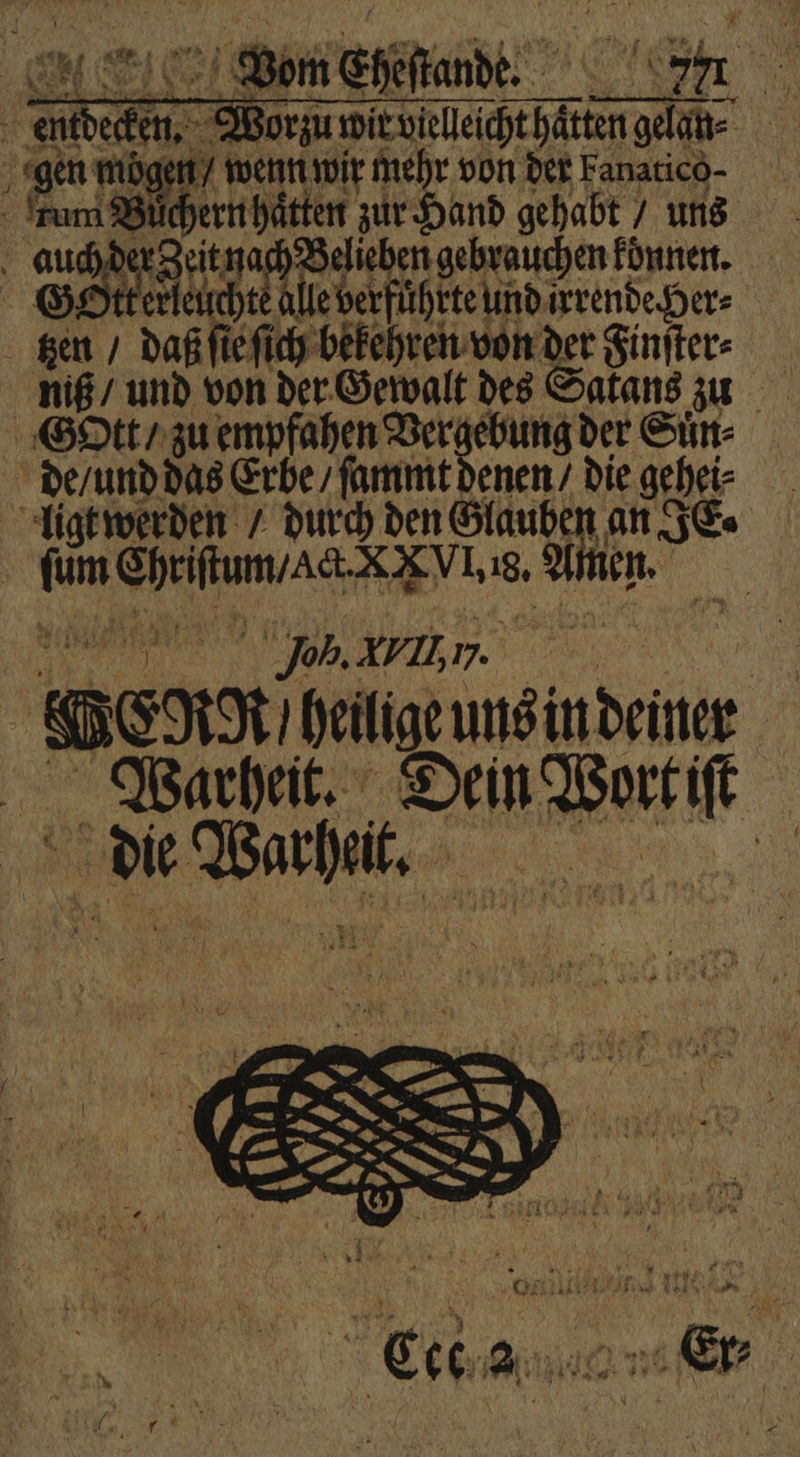 Vom Eheſtande. 771
entdecken. Worzu wir vielleicht haͤtten gelan⸗
gen moͤgen / wenn wir mehr von der Fanatico-
rum Buͤchern haͤtten zur Hand gehabt / uns
auch der Zeit nach Belieben gebrauchen koͤnnen.
GOtt erleuchte alle verfuͤhrte und irrende Her⸗
tzen / daß ſie ſich bekehren von der Finſter⸗
niß / und von der Gewalt des Satans zu
GOtt / zu empfahen Vergebung der Suͤn⸗
de / und das Erbe / ſammt denen / die gehei⸗
ligt werden / durch den Glauben an JE⸗
ſum Chriſtum / Act. XXVI, 18. Amen.
Joh. XVII, 17.
HERR / heilige uns in deiner
Warheit. Dein Wort iſt
die Warheit.
Ccc 2 Er⸗